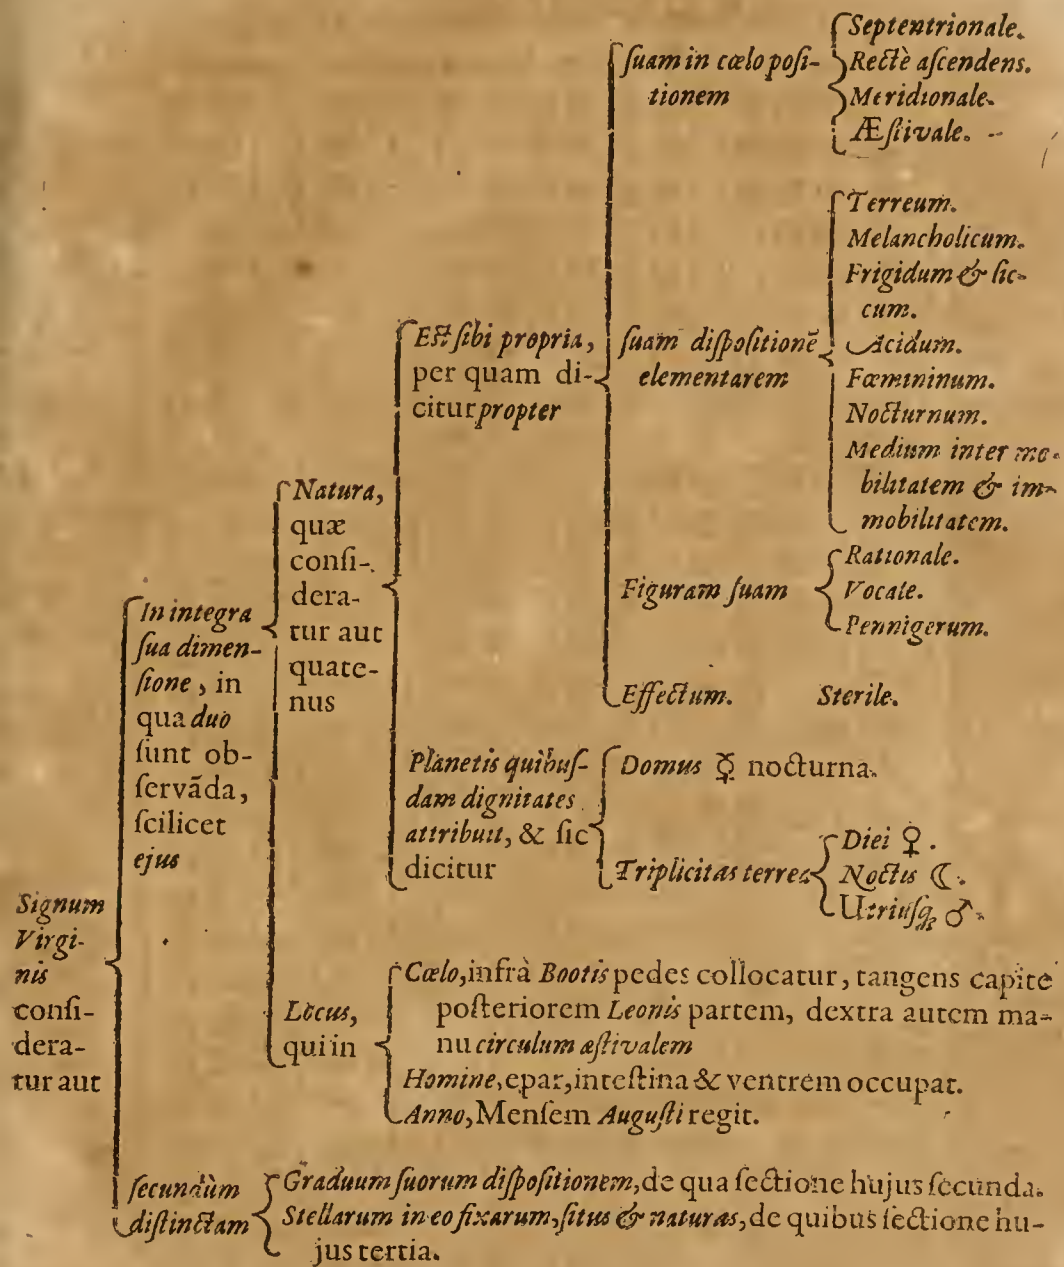 Signum
Virgi-
nis
consi-
dera-
tur aut
In integra
sua dimen-
sione, in
qua duo
sunt ob-
servãda,
scilicet
ejus
Natura,
quæ
consi-
dera-
tur aut
quate-
nus
Est sibi propria,
per quam di-
citur propter
suam in cœlo posi-
tionem
Septentrionale.
Rectè ascendens.
Meridionale.
Æstivale.
suam dispositionẽ
elementarem
Terreum.
Melancholicum.
Frigidum & sic-
cum.
Acidum.
Fœmininum.
Nocturnum.
Medium inter mo-
bilitatem & im-
mobilitatem.
Figuram suam
Rationale.
Vocale.
Pennigerum.
Effectum. Sterile.
Planetis quibus-
dam dignitates
attribuit, & sic
dicitur
Domus ☿ nocturna.
Triplicitas terrea
Diei ♀.
Noctis ☾.
Utriusq; ♂.
Locus,
qui in
Cœlo, infrà Bootis pedes collocatur, tangens capite
posteriorem Leonis partem, dextra autem ma-
nu circulum æstivalem
Homine, epar, intestina & ventrem occupat.
Anno, Mensem Augusti regit.
secundùm
distinctam
Graduum suorum dispositionem, de qua sectione hujus secunda.
Stellarum in eo fixarum, situs & naturas, de quibus sectione hu-
jus tertia.